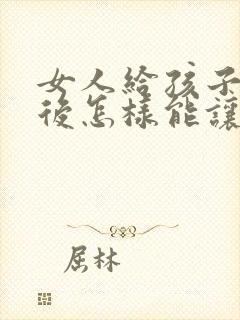 女人給孩子
後怎樣能讓
屈林